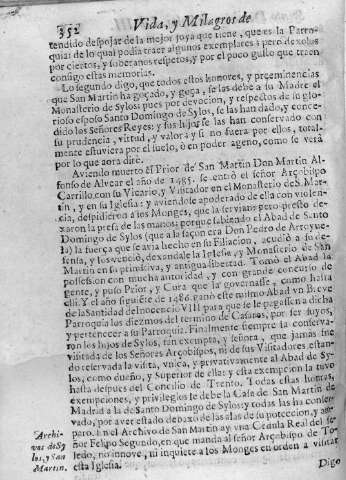 352 Vida, y Milagros de
tendido despojar de la mejor joya que tiene, que es la Parro-
quia: de lo qual podia traer algunos exemplares; pero dexolos
por ciertos, y soberanos respetos, y por el poco gusto que traen
consigo estas memorias.
Lo segundo digo, que todos estos honores, y preeminencias
que San Martin ha goçado, y goça, se les debe a su Madre el
Monasterio de Sylos pues por devocion, y respectos de su glo-
rioso esposo Santo Domingo de Sylos, se las han dado, y conce-
dido los Señores Reyes: y sus hijos se las han conservado con
su prudencia, virtud, y valor: y si no fuera por ellos, total-
mente estuviera por el suelo, ò en poder ageno, como se verà
por lo que aora dirè.
Aviendo muerto el Prior de San Martin Don Martin Al-
fonso de Alvear el año de 1485. se entrò el señor Arçobispo
Carrillo, con su Vicario, y Visitador en el Monasterio de S. Mar-
tin, y en su Iglesia: y aviendose apoderado de ella con violen-
cia, despidieron a los Monges, que la servian: pero presto de-
xaron la presa de las manos; porque sabiendo el Abad de Santo
Domingo de Sylos (que a la façon era Don Pedro de Arroyue-
la) la fuerça que se avia hecho en su Filiacion, acudiò a su de-
fensa, y los venciò, dexandole la Iglesia, y Monasterio de San
Martin en su primitiva, y antigua libertad. Tomò el Abad la
possession con mucha autoridad, y con grande concurso de
gente, y puso Prior, y Cura que la governasse, como hasta
alli. Y el año siguiẽte de 1486. ganò este mismo Abad vn Breve
de la Santidad de Inocencio VIII para que se le pagassen a dicha
Parroquia los diezmos del termino de Casaras, por ser suyos,
y pertenecer a su Parroquia. Finalmente siempre la conserva-
ron los hijos de Sylos, tan exempta, y señora, que jamas fue
visitada de los Señores Arçobispos, ni de sus Visitadores estan-
do reservada la visita, vnica, y privativamente al Abad de Sy-
los, como dueño, y Superior de ella: y esta exempcion la tuvo
hasta despues del Concilio de Trento. Todas estas honras,
exempciones, y privilegios le debe la Casa de San Martin de
Madrid a la de Santo Domingo de Sylos: y todas las ha conser-
vado, por aver estado debaxo de las alas de su proteccion, y am-
paro. En el Archivo de San Martin ay vna Cedula Real del se-
ñor Felipo Segundo, en que manda al señor Arçobispo de To-
ledo, no innove, ni inquiete a los Monges en orden a visitar
esta Iglesia.
Archi-
vos de Sy
los, y San
Martin.
Digo